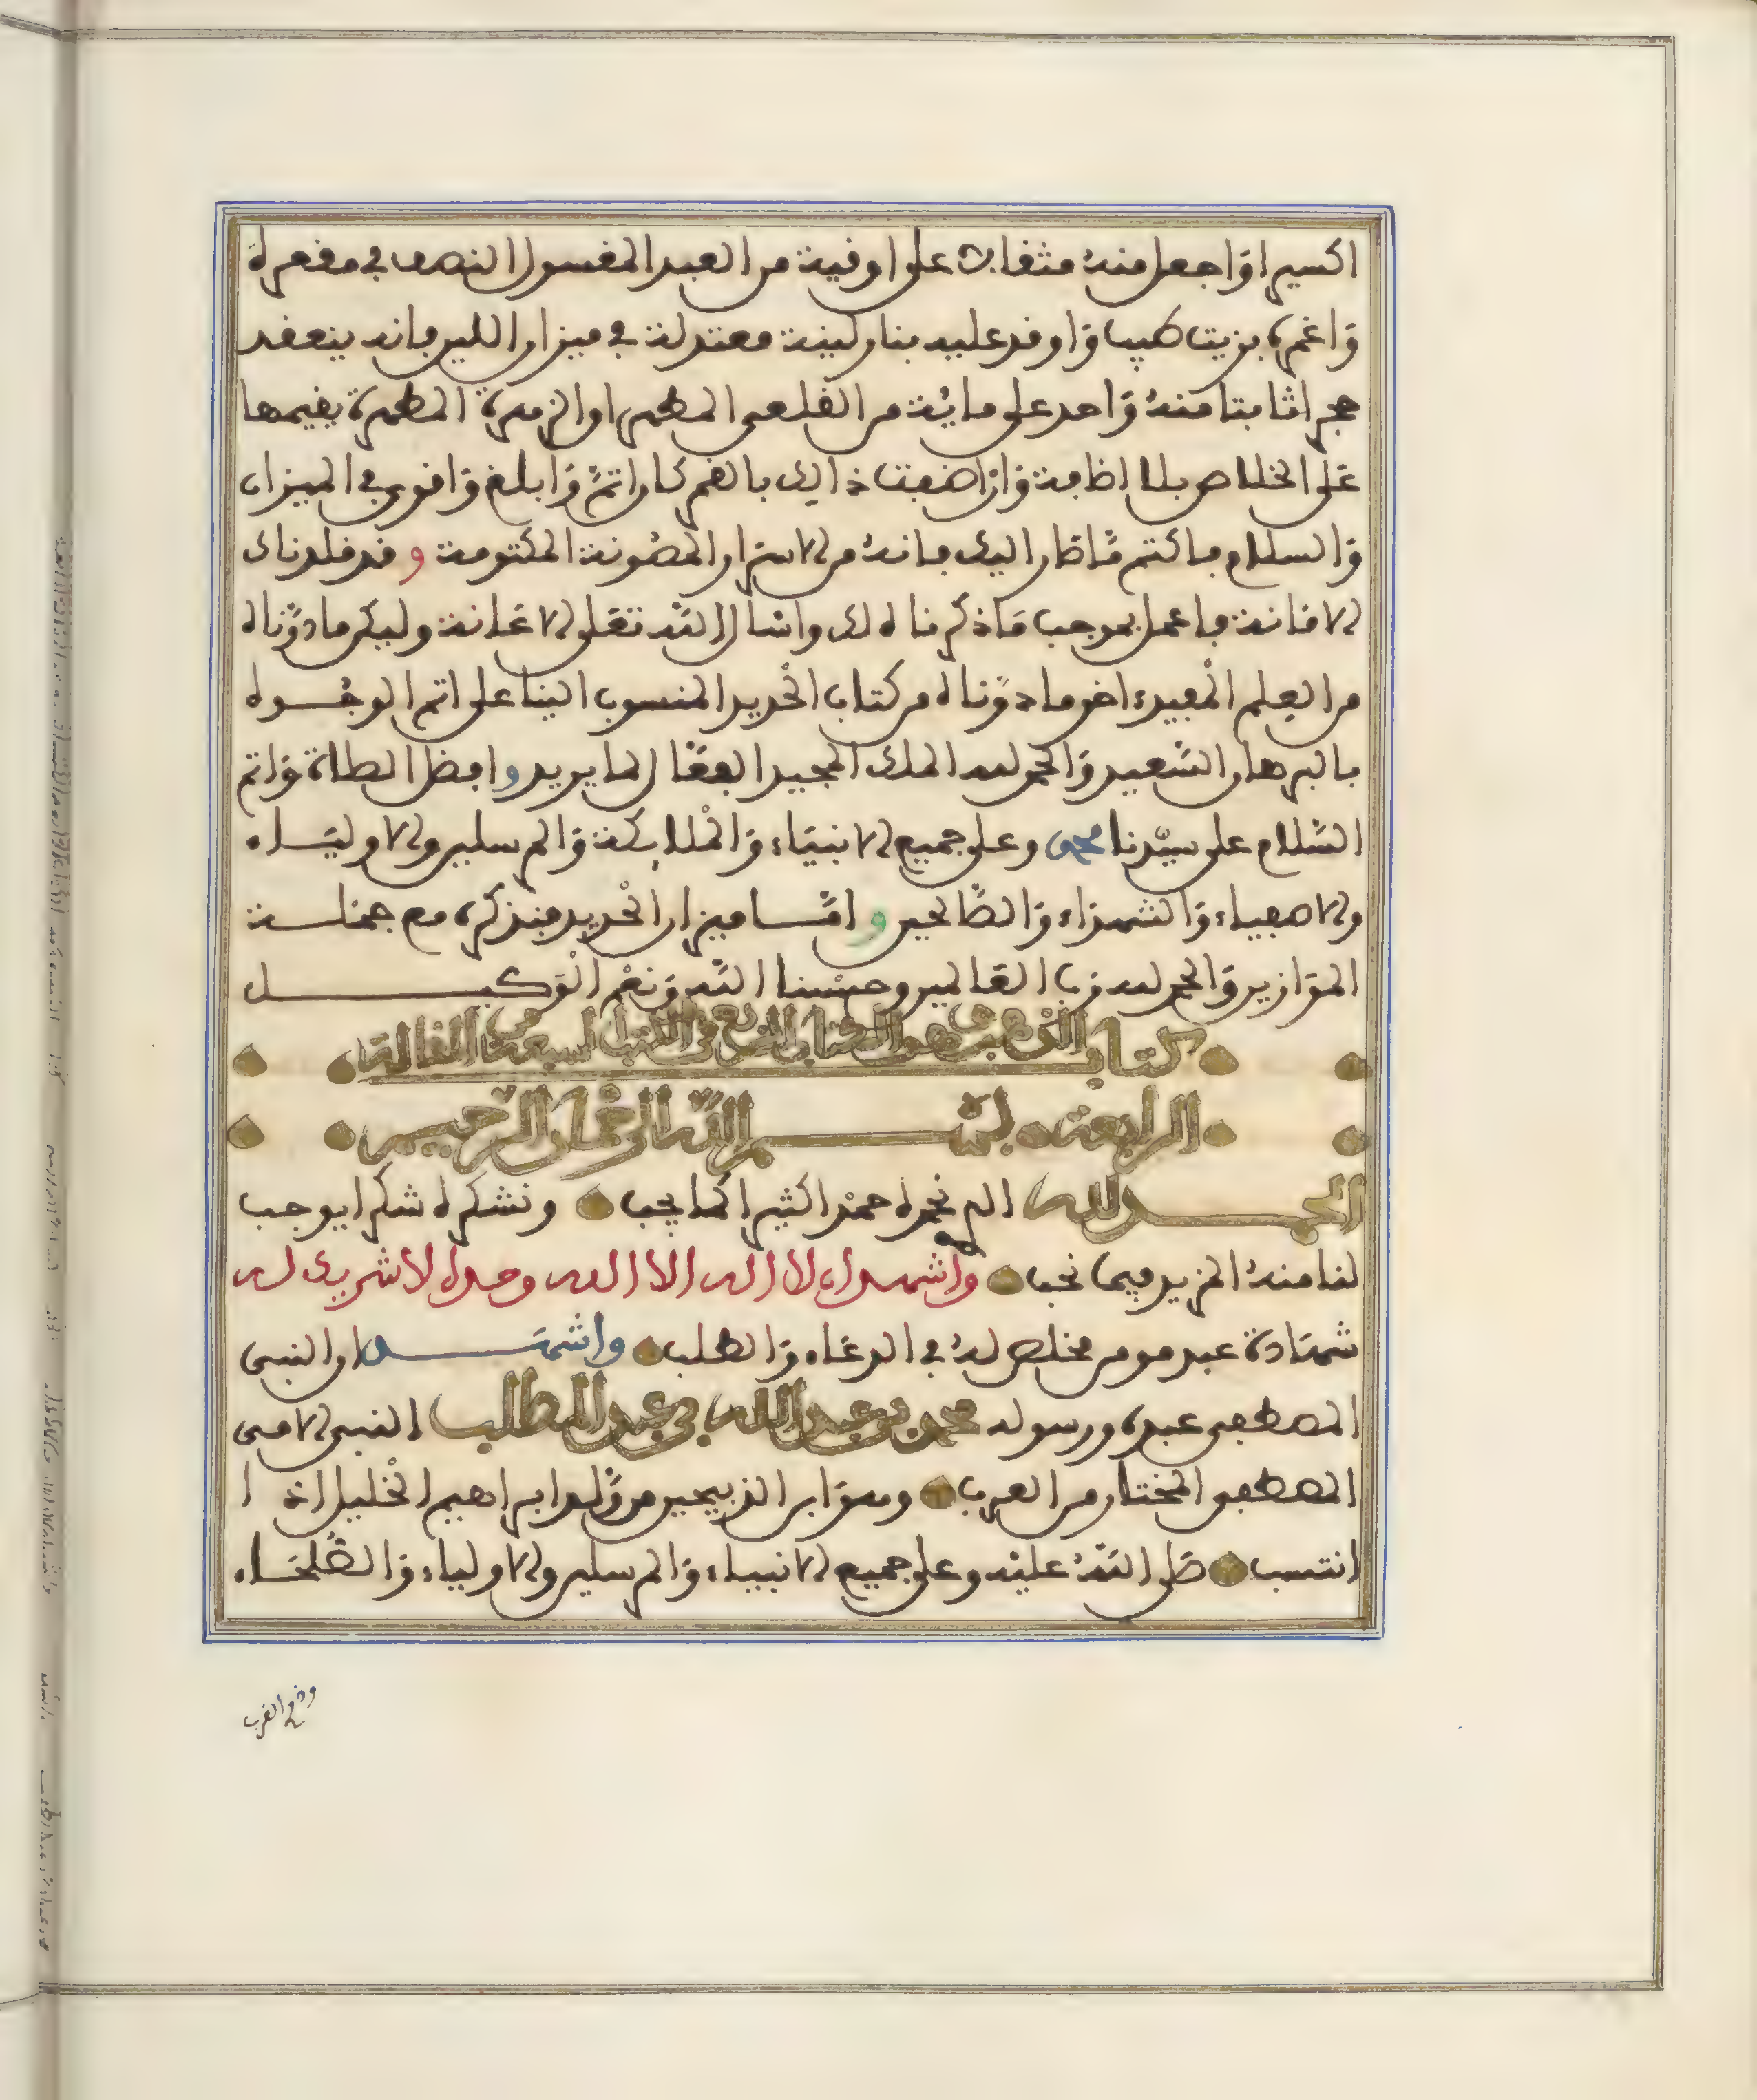 اكسيرا واجعل منه مثقالا على اوقية من العبد المغسول النصف في مقعرة
واغمره بزيت طيب واوقد عليه بنار لينة معتدلة في ميزان اللين فانه ينعقد
حجرا ثابتا منه واحد على مائة من القلعي المطهر او الزهرة المطهرة يقيمها
على الخلاص بلا اضافة وان اضفت ذالك بالقمر كان اتم وابلغ واقوى في الميزان
والسلام فاكتم ما صار اليك فانه من الاسرار المصونة المكتومة وقد قلدناك
الامانة فاعمل بموجب ما ذكرناه لك واسال الله تعلى الاعانة وليكن ما دوناه
من العلم المفيد اخر ما دوناه من كتاب الحديد المنسوب الينا على اتم الوجوه
بالبرهان السعيد والحمد لله الملك المجيد الفعال لما يريد وافضل الصلاة واتم
السلام على سيدنا محمد وعلى جميع الانبياء والملائكة والمرسلين والاولياء
والاصفياء والشهداء والصالحين واما ميزان الحديد فنذكره مع جملة
الموازين والحمد لله رب العالمين وحسبنا الله ونعم الوكيل
كتاب الذهب وهو الكتاب الرابع في الكتب السبعة من المقالة
الرابعة بسم الله الرحمان الرحيم
الحمد لله الذي نحمده حمدا كثيرا كما يجب ونشكره شكرا يوجب
لنا منه المزيد فيما نحب واشهد ان لا اله الا الله وحده لا شريك له
شهادة عبد مومن مخلص له في الدعاء والطلب واشهد ان النبي
المصطفى عبده ورسوله محمد بن عبد الله بن عبد المطلب النبي الامي
المصطفى المختار من العرب وهو ابن الذبيحين من ولد ابراهيم الخليل اذا
انتسب صلى الله عليه وعلى جميع الانبياء والمرسلين والاولياء والصلحاء